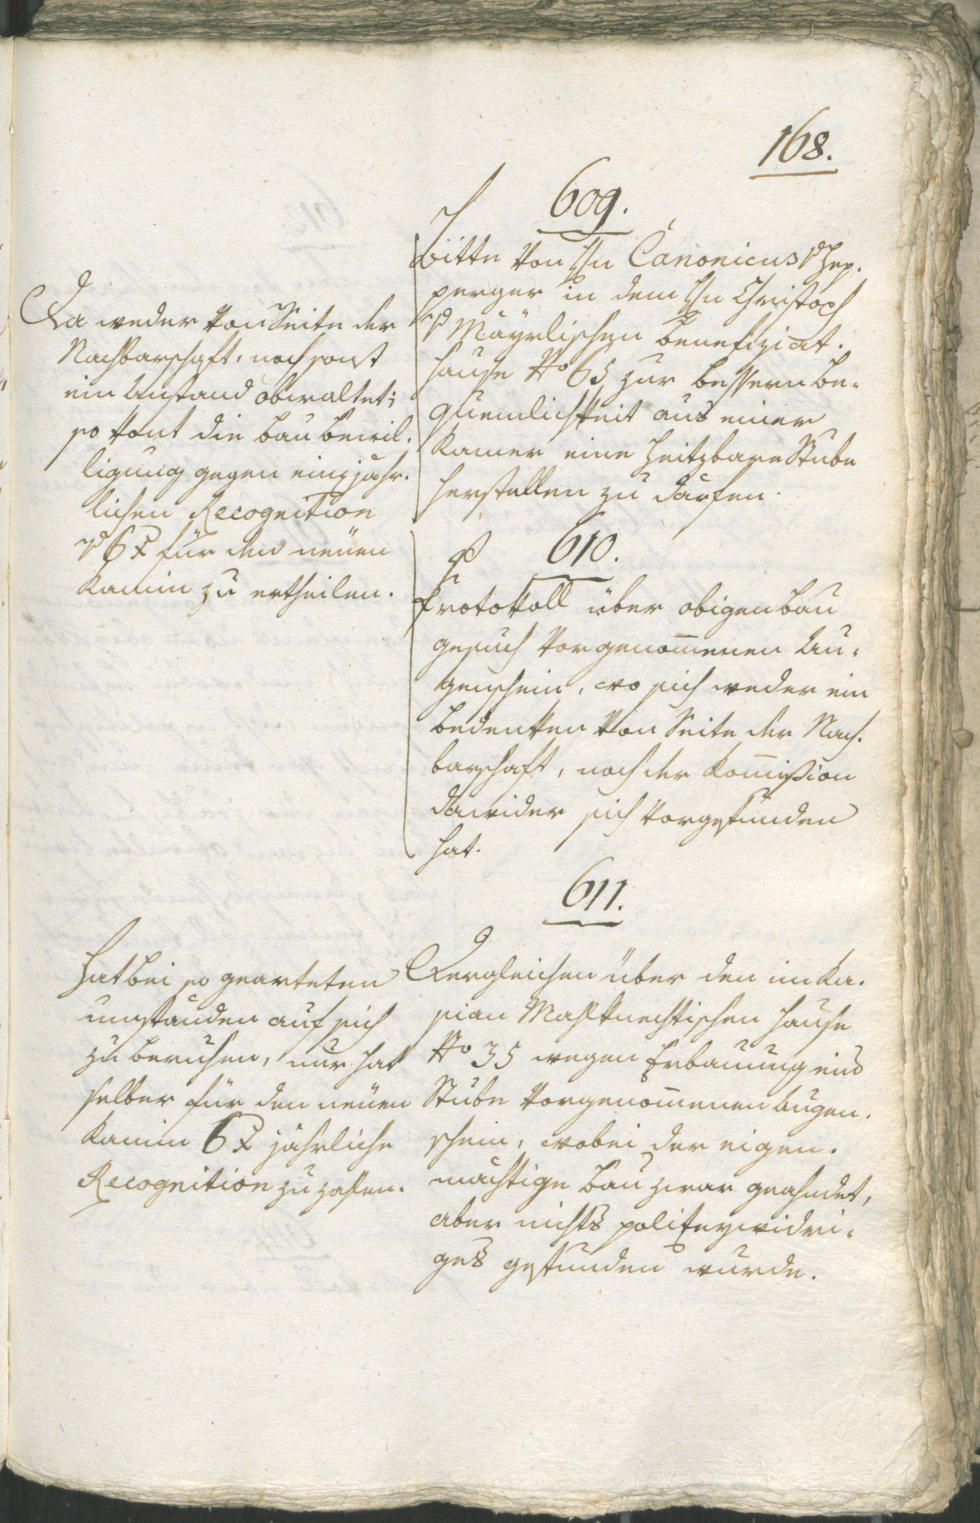 168.
609.
Bitte von H/n Canonicus v Hep-
perger in dem H/n Christoph
v Mäyrlischen Benefiziat-
hause No 65 zur bessern Be-
quemlichkeit aus einer
Kamer eine heitzbare Stube
herstellen zu därfen.
Da weder von Seite der
Nachbarschaft, noch sonst
ein Anstand obwaltet;
so kont die Baubewil-
ligung gegen einjähr-
lichen Recognition
v 6 x für den neuen
Kamin zu ertheilen.
610.
Protokoll über obigen Bau
gesuch vorgenommenen Au-
genschein, wo sich weder ein
Bedenken von Seite der Nach-
barschaft, noch der Kommißion
dawider sich vorgefunden
hat.
611.
Dergleichen über den im Ka-
sian Mahlknechtischen Hause
No 35 wegen Erbauung eins
Stube vorgenommenen Augen-
schein, wobei der eigen-
mächtige Bau zwar geahndet,
aber nichts polizeywidri-
ges gefunden wurde.
Hat bei so gearteten
umständen auf sich
zu beruhen, nur hat
selber für den neuen
Kamin 6 x jährliche
Recognition zu zahlen.